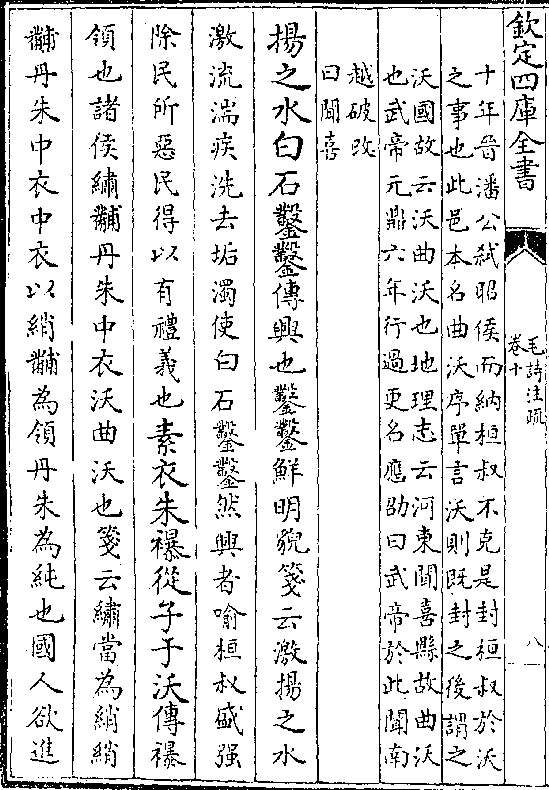 欽定四庫全書
毛詩注疏
卷十
八
十年晉潘公弑昭侯而納桓叔不克是封桓叔於沃
之事也此邑本名曲沃序單言沃則既封之後謂之
沃國故云沃曲沃也地理志云河東聞喜縣故曲沃
也武帝元鼎六年行過更名應劭曰武帝於此聞南
越破改
曰聞喜
揚之水白石鑿鑿傳興也鑿鑿鮮明貌箋云激揚之水
激流湍疾洗去垢濁使白石鑿鑿然興者喻桓叔盛强
除民所惡民得以有禮義也素衣朱襮從子于沃傳襮
領也諸侯繡黼丹朱中衣沃曲沃也箋云繡當為綃綃
黼丹朱中衣中衣以綃黼為領丹朱為純也國人欲進